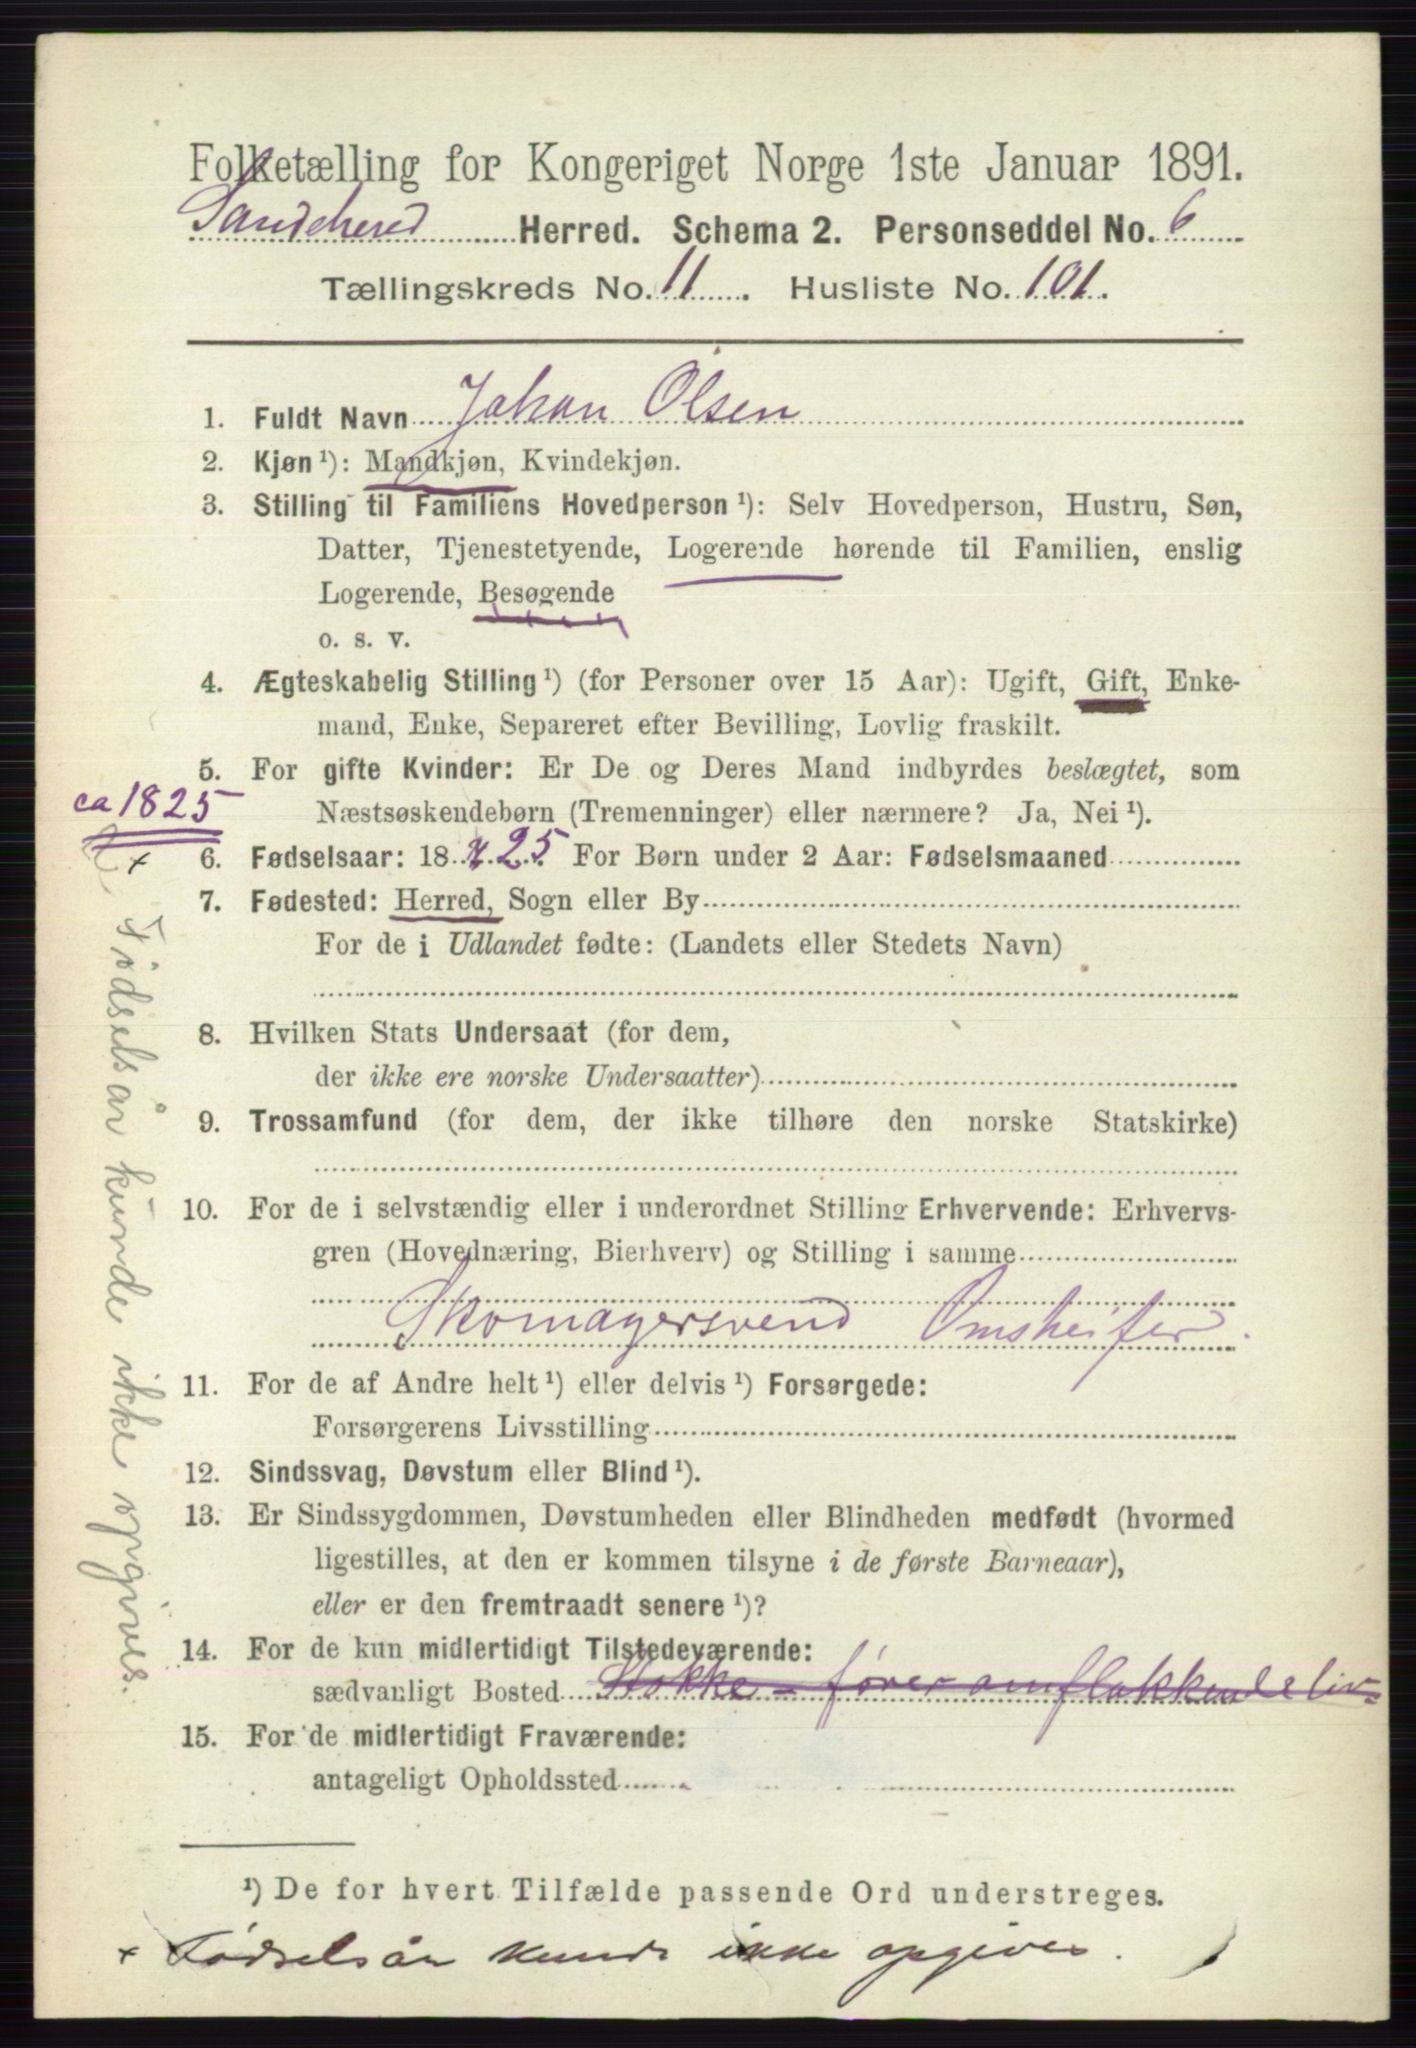 Folketælling for Kongeriget Norge 1ste Januar 1891.
Sandeherred Herred. Schema 2. Personseddel No. 6
Tællingskreds No. 11. Husliste No. 101.
1. Fuldt Navn Johan Olsen
2. Kjøn ¹): Mandkjøn, Kvindekjøn.
3. Stilling til Familiens Hovedperson ¹): Selv Hovedperson, Hustru, Søn,
Datter, Tjenestetyende, Logerende hørende til Familien, enslig
Logerende, Besøgende
o. s. v.
4. Ægteskabelig Stilling ¹) (for Personer over 15 Aar): Ugift, Gift, Enke-
mand, Enke, Separeret efter Bevilling, Lovlig fraskilt.
5. For gifte Kvinder: Er De og Deres Mand indbyrdes beslægtet, som
Næstsøskendebørn (Tremenninger) eller nærmere? Ja, Nei ¹).
ca 1825
× 6. Fødselsaar: 18 25. For Børn under 2 Aar: Fødselsmaaned
7. Fødested: Herred, Sogn eller By
For de i Udlandet fødte: (Landets eller Stedets Navn)
8. Hvilken Stats Undersaat (for dem,
der ikke ere norske Undersaatter)
9. Trossamfund (for dem, der ikke tilhøre den norske Statskirke)
10. For de i selvstændig eller i underordnet Stilling Erhvervende: Erhvervs-
gren (Hovednæring, Bierhverv) og Stilling i samme
Skomagersvend Omsteifer.
11. For de af Andre helt ¹) eller delvis ¹) Forsørgede:
Forsørgerens Livsstilling
12. Sindssvag, Døvstum eller Blind ¹).
13. Er Sindssygdommen, Døvstumheden eller Blindheden medfødt (hvormed
ligestilles, at den er kommen tilsyne i de første Barneaar),
eller er den fremtraadt senere ¹)?
14. For de kun midlertidigt Tilstedeværende:
sædvanligt Bosted Stokke - fører omflakkende liv
15. For de midlertidigt Fraværende:
antageligt Opholdssted
¹) De for hvert Tilfælde passende Ord understreges.
× Fødselsår kunde ikke opgives.
Fødselsår kunde ikke opgives.